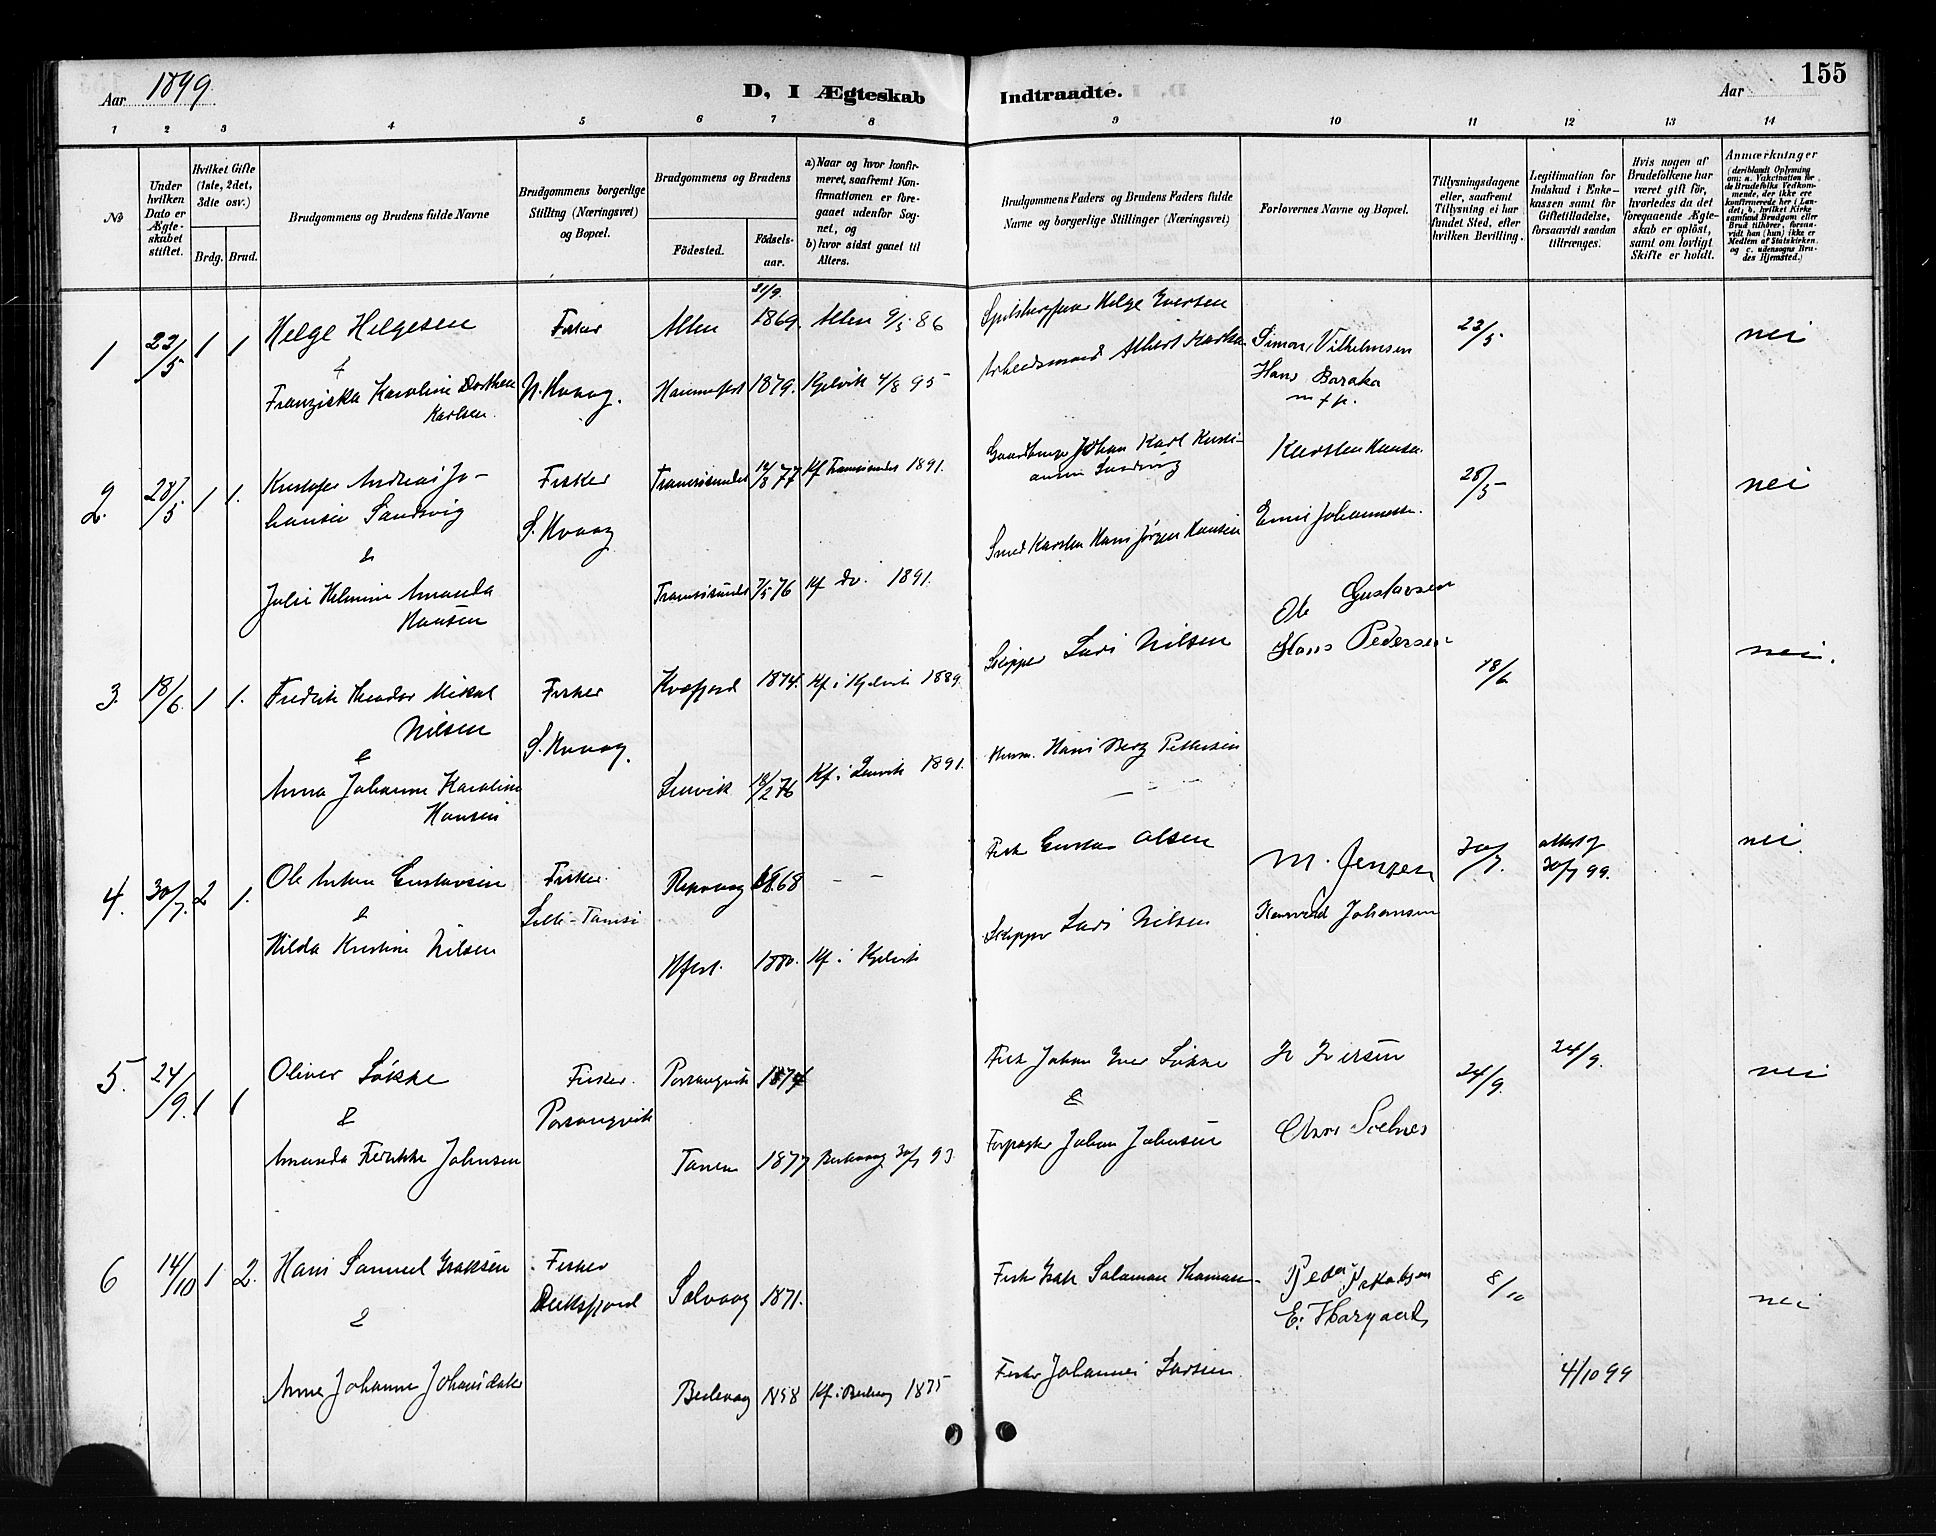 Aar 1899
D, I Ægteskab Indtraadte.
Aar
155
1 2 3 4 5 6 7 8 9 10 11 12 13 14
No
Under hvilken Dato er Ægteskabet stiftet.
Hvilket Gifte (1ste, 2det, 3die osv.)
Brdg. Brud.
Brudgommens og Brudens fulde Navne
Brudgommens borgerlige Stilling (Næringsvei) og Bopæl.
Brudgommens og Brudens
Fødested.
Fødsels-aar.
a) Naar og hvor konfirmeret, saafremt Konfirmationen er foregaaet udenfor Sognet, og
b) hvor sidst gaaet til Alters.
Brudgommens Faders og Brudens Faders fulde Navne og borgerlige Stillinger (Næringsvei)
Forlovernes Navne og Bopæl.
Tillysningsdagene eller, saafremt Tillysning ei har fundet Sted, efter hvilken Bevilling.
Legitimation for Indskud i Enkekassen samt for Giftetilladelse, forsaavidt saadan tiltrænges.
Hvis nogen af Brudefolkene har været gift før, hvorledes da det foregaaende Ægteskab er opløst, samt om lovligt Skifte er holdt.
Anmærkninger (deriblandt Oplysning om: a. Vakcination for de Brudefolks Vedkommende, der ikke ere konfirmerede her i Landet, b. hvilket Kirkesamfund Brudgom eller Brud tilhører, forsaavidt han (hun) ikke er Medlem af Statskirken, og c. udensogns Brudes Hjemsted.)
1 23/5 1 1 Helge Helgesen Fisker Alten 21/9 1869. Alten 9/5 86 Helge Eversen Simon Vilhelmsen 23/5 nei
&
Franziska Karoline Dorthea Karlsen. N. Kvaag. Hammerfest 1879. Kjelvik 4/8 95 Arbeidsmand Albert Hans Baraka
2. 28/5 1 1. Kristofer Andreas Johansen Sandvig Fisker S. Kvaag Tromsösundet 12/8 77 Kf Tromsösundet 1891. Johan Karl Kristiansen Sandvig Karsten Hansen 28/5 nei
&
Julie Helmine Amanda Hansen Tromsösundet 7/5 76 Kf do. 1891. Smed Karsten Hans Jørgen Hansen
3. 18/6 1 1. Fredrik Theodor Mikal Nilsen Fisker S. Kvaag. Kvæfjord 1874. Kf i Kjelvik 1889. Skipper Lars Nilsen Ole Gustavsen Hans Pedersen 18/6 nei.
&
Anna Johanne Karoline Hansen Lenvik 18/2 76 Kf i Lenvik 1891. Hans Berg Pettersen
4. 30/7. 2 1. Ole Anton Gustavsen Fisker. Lille-Tamsö Repvaag 1868 — — Fisk Gustav Olsen M. Jensen 30/7. attest af 30/7 99. nei
&
Hilda Kristine Nilsen Hfest. 1880. Kf i Kjelvik Skipper Lars Nilsen Johansen
5. 24/9. 1 1 Oliver Løkke Fisker. Porsangvik Porsangvik 1874 Fisk Johan Iver Løkke 24/9. 24/9. nei
&
Amanda Fredrikke Johnsen Tanen 1877 Berlevaag 30/7 93. Forpagter Johan Johnsen
6 14/10 1 2. Hans Samuel Isaksen Fisker Solvaag 1871. Fisk Isak Salamon Peder Jakobsen E. Hargaard 8/10 nei
&
Anna Johanne Johansdatter Berlevaag 1858 Kf. i Berlevaag 1875 Fisker Johannes Larsen 4/10 99